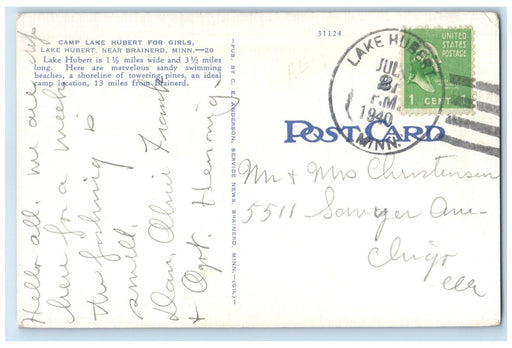 CAMP LAKE HUBERT FOR GIRLS,
LAKE HUBERT, NEAR BRAINERD, MINN.—20
Lake Hubert is 1 ½ miles wide and 3 ½ miles
long. Here are marvelous sandy swimming
beaches, a shoreline of towering pines, an ideal
camp location, 13 miles from Brainerd.
Hello all, we are up
here for a week
the fishing is
swell.
Dan, Alvie Frank
+ Henning
—PUB. BY C. E. ANDERSON, SERVICE NEWS, BRAINERD, MINN.—(GIL)—
31124
LAKE HUBERT
JUL
P.M.
1940
MINN.
UNITED
STATES
POSTAGE
1 CENT 1
POST CARD
Mr + Mrs Christensen
5511 Sawyer Ave
Chigo
Ill